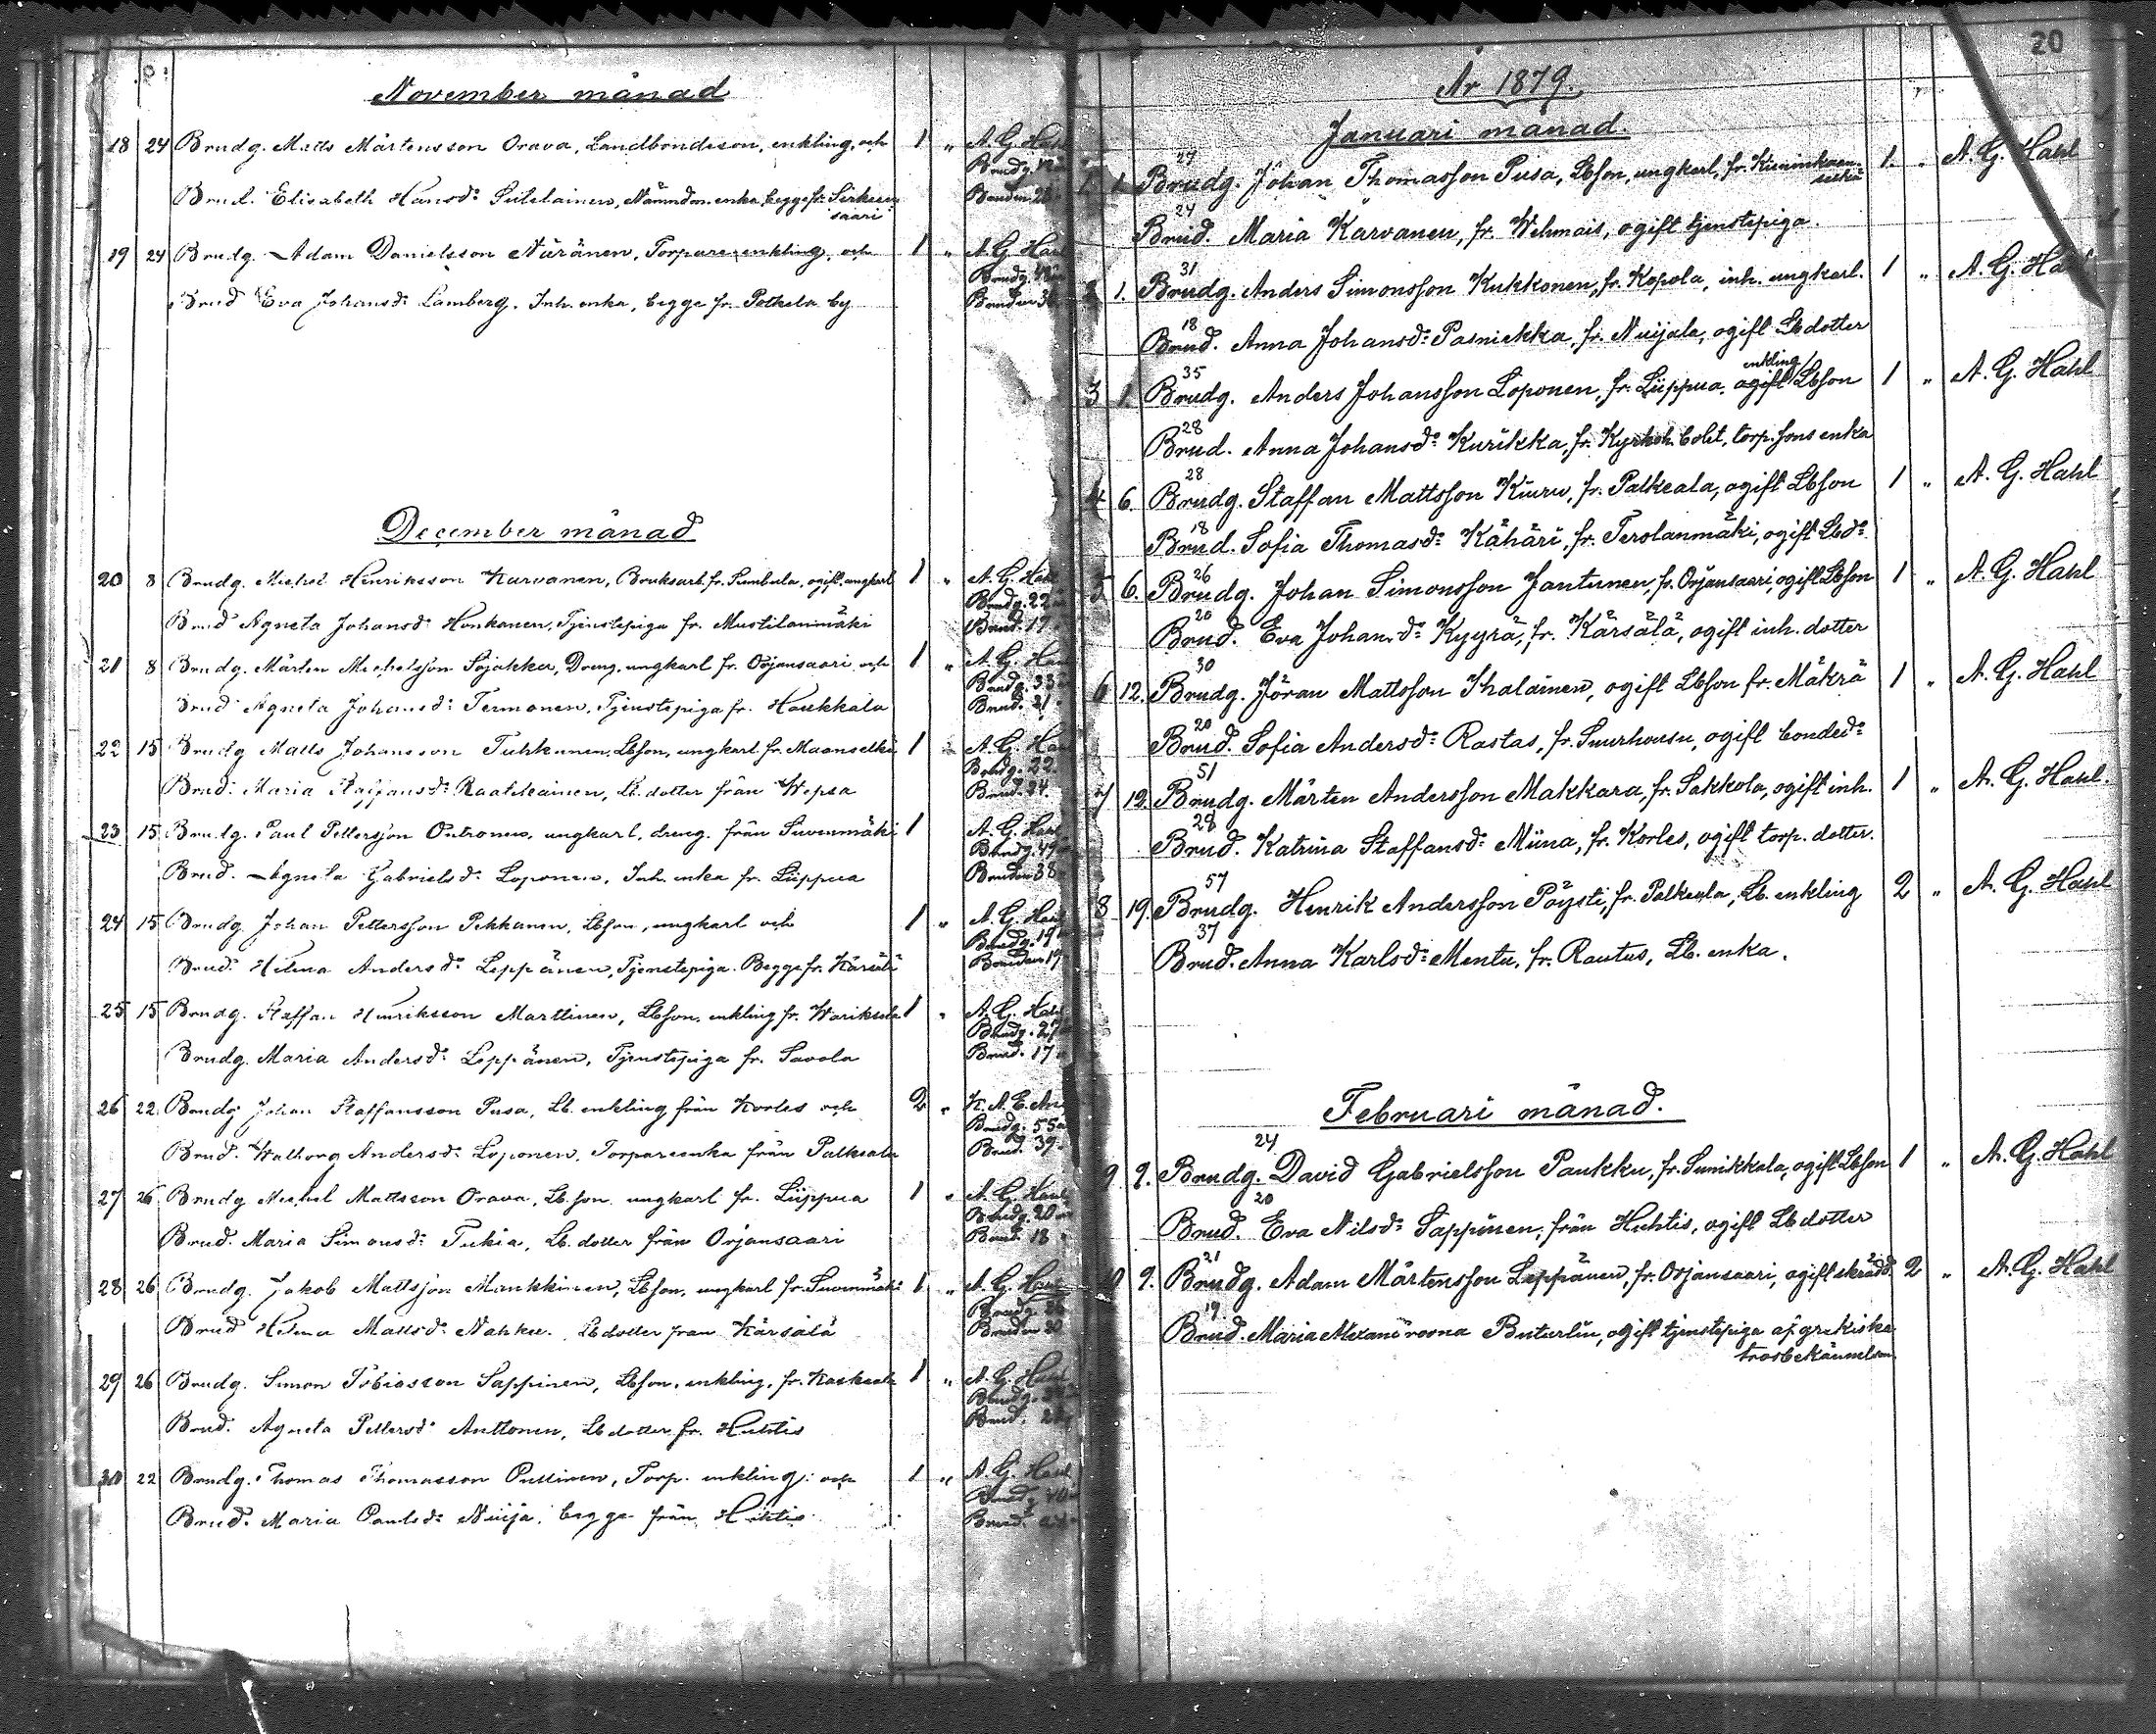 November månad
18 24 Brudg. Matts Mårtensson Orava, Landbondeson, enkling, och 1 " A. G. Hahl
Brudg.
Brud. Elisabeth Hansd: Suikilainen, Nämndem. enka, begge fr. Sirkeen
saari
Bruden
19 24 Brudg. Adam Danielsson Näränen, Torpare, enkling, och 1 " A. G. Hahl
Brudg.
Brud Eva Johansd: Lamberg, Inh. enka, begge fr. Petkela by
Bruden
December månad
20 8 Brudg. Michel Henriksson Karvanen, Bruksarb. fr. Sumbula, ogift, ungkarl 1 " A. G. Hahl
Brudg. 22
Brud Agneta Johansd: Honkanen, Tjenstepiga fr. Mustilanmäki
Brud. 19
21 8 Brudg. Mårten Michelsson Sojakka, Dreng, ungkarl fr. Orjansaari och 1 " A. G. Hahl
Brudg. 33
Brud Agneta Johansd: Termonen, Tjenstepiga fr. Haukkala
Brud. 21
22 15 Brudg Matts Johansson Tuhkunen, Lbson, ungkarl fr. Maanselkä 1 " A. G. Hahl
Brudg. 22.
Brud. Maria Staffansd: Raatikainen, Lb. dotter från Wepsa
Brud. 24.
23 15 Brudg. Paul Pettersson Outronen, ungkarl, dreng. från Suvenmäki 1 A. G. Hahl
Brudg. 49
Brud. Agneta Gabrielsd: Loponen, Inh. enka fr. Liippua
Bruden 38
24 15 Brudg. Johan Pettersson Pekkanen, Lbson, ungkarl och 1 " A. G. Hahl
Brudg. 19
Brud. Helena Andersd: Leppänen, Tjenstepiga. Begge fr. Kärsälä
Bruden 19
25 15 Brudg. Staffan Henriksson Marttinen, Lbson, enkling fr. Warikselä 1 " A. G. Hahl
Brudg. 27
Brudg. Maria Andersd: Leppänen, Tjenstepiga fr. Savola
Brud. 17
26 22 Brudg Johan Staffansson Pusa, Lb. enkling från Korles och 2 " K. A. E.
Brudg. 55
Brud. Walborg Andersd: Loponen, Torpareenka från Palkeala
Brud. 39.
27 26 Brudg Michel Mattsson Orava, Lb. son, ungkarl fr. Liippua 1 " A. G. Hahl
Brudg. 20
Brud. Maria Simonsd: Tukia, Lb. dotter från Orjansaari
Brud. 18
28 26 Brudg. Jakob Mattsson Mankkinen, Lbson, ungkarl fr. Suvenmäki 1 " A. G. Hahl
Brudg.
Brud Helena Mattsd: Nahku, Lb dotter från Kärsälä
Bruden 20
29 26 Brudg. Simon Tobiasson Sappinen, Lbson, enkling, fr. Kaskaala 1 " A. G. Hahl
Brudg.
Brud. Agneta Pettersd: Anttonen, Lb dotter fr. Huhtis
Brud.
30 22 Brudg. Thomas Thomasson Puttinen, Torp. enkling och 1 " A. G. Hahl
Brudg. 40
Brud. Maria Paulsd: Nuija, begge från Huhtis
Brud.
20
År 1879.
Januari månad.
27
1 1 Brudg. Johan Thomasson Pusa, Lbson, ungkarl, fr. Kuninkaan- 1. " A. G. Hahl
selkä
24
Brud. Maria Karvanen, fr. Wehmais, ogift tjenstepiga.
31
2 1. Brudg. Anders Simonsson Kukkonen, fr. Kopola, inh. ungkarl. 1 " A. G. Hahl
18
Brud. Anna Johansd: Pasniekka, fr. Nuijala, ogift Lb dotter
35 enkling
3 1 Brudg. Anders Johansson Loponen, fr. Liippua, ogift Lbson 1 " A. G. Hahl
28
Brud. Anna Johansd: Kurikka, fr. Kyrkoh. bolst, torp. sons enka
28
4 6 Brudg. Staffan Mattsson Kiuru, fr. Palkeala, ogift Lbson 1 " A. G. Hahl
18
Brud. Sofia Thomasd: Kähäri, fr. Terolanmäki, ogift Lbd:
26
5 6. Brudg. Johan Simonsson Jantunen, fr. Orjansaari, ogift Lbson 1 " A. G. Hahl
20
Brud. Eva Johansd: Kyyrä, fr. Kärsälä, ogift inh. dotter
30
6 12. Brudg. Jöran Mattsson Ihalainen, ogift Lbson fr. Mäkrä 1 " A. G. Hahl
20
Brud. Sofia Andersd: Rastas, fr. Suurhousu, ogift bonded:
51
7 12. Brudg. Mårten Andersson Makkara, fr. Sakkola, ogift inh. 1 " A. G. Hahl.
28
Brud. Katrina Staffansd: Miina, fr. Korles, ogift torp. dotter.
57
8 19. Brudg. Henrik Andersson Pöysti, fr. Palkeala, Lb. enkling 2 " A. G. Hahl
37
Brud. Anna Karlsd: Mentu, fr. Rautus, Lb. enka.
Februari månad.
24
9 9. Brudg. David Gabrielsson Paukku, fr. Sunikkala, ogift Lbson 1 " A. G. Hahl
20
Brud. Eva Nilsd: Sappinen, från Huhtis, ogift Lb dotter
21
10 9. Brudg. Adam Mårtensson Leppänen, fr. Orjansaari, ogift skrädd. 2 " A. G. Hahl
19
Brud. Maria Alexandrovna Buturlin, ogift tjenstepiga af grekiska
trosbekännelsen.